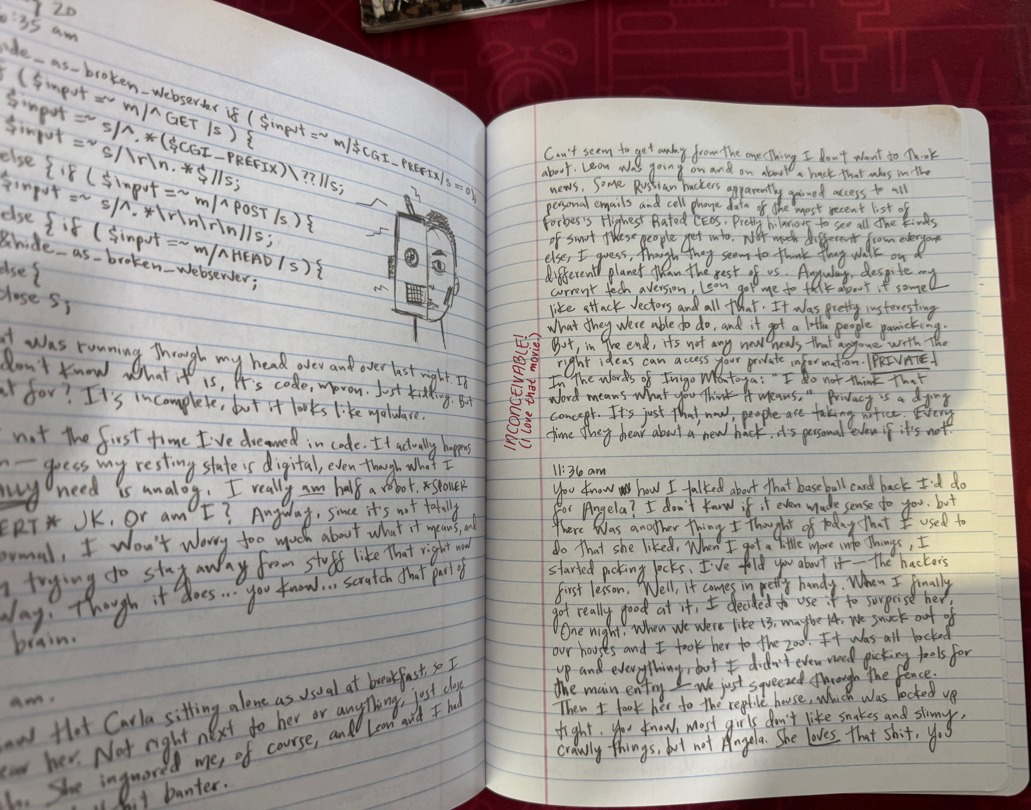 y 20
:35 am
ide_as_broken_webserver if ($input =~ m/$CGI_PREFIX/s = 0);
($input =~ m/^GET /s) {
$input =~ s/^.*($CGI_PREFIX)\??//s;
$input =~ s/\r\n.*$//s;
else { if ($input =~ m/^POST /s) {
$input =~ s/^.*\r\n\r\n//s;
else { if ($input =~ m/^HEAD /s) {
&hide_as_broken_webserver;
else {
close S;
at was running through my head over and over last night. If
don't know what it is, it's code, moron. Just kidding. But
at for? It's incomplete, but it looks like malware.
not the first time I've dreamed in code. It actually happens
n — guess my resting state is digital, even though what I
lly need is analog. I really am half a robot. *SPOILER
ERT* JK. Or am I? Anyway, since it's not totally
ormal, I won't worry too much about what it means, and
trying to stay away from stuff like that right now
way. Though it does... you know... scratch that part of
brain.
am.
saw Hot Carla sitting alone as usual at breakfast, so I
ear her. Not right next to her or anything, just close
h. She ingnored me, of course, and Leon and I had
it banter.
Can't seem to get away from the one thing I don't want to think
about. Leon was going on and on about a hack that was in the
news. Some Russian hackers apparently gained access to all
personal emails and cell phone data of the most recent list of
Forbes's Highest Rated CEOs. Pretty hilarious to see all the kinds
of smut these people get into. Not much different from everyone
else, I guess, though they seem to think they walk on a
different planet than the rest of us. Anyway, despite my
current tech aversion, Leon got me to talk about it some
like attack vectors and all that. It was pretty insteresting
what they were able to do, and it got a lotta people panicking.
But, in the end, its not any new news that anyone with the
right ideas can access your private information. PRIVATE.
In the words of Inigo Montoya: "I do not think that
word means what you think it means." Privacy is a dying
concept. It's just that now, people are taking notice. Every
time they hear about a new hack, it's personal even if it's not.
INCONCEIVABLE!
(I love that movie.)
11:36 am
You know how I talked about that baseball card hack I'd do
for Angela? I don't know if it even made sense to you, but
there was another thing I thought of today that I used to
do that she liked. When I got a little more into things, I
started picking locks. I've told you about it — the hacker's
first lesson. Well, it comes in pretty handy. When I finally
got really good at it, I decided to use it to surprise her.
One night, when we were like 13, maybe 14, we snuck out of
our houses and I took her to the zoo. It was all locked
up and everything, but I didn't even need picking tools for
the main entry — we just squeezed through the fence.
Then I took her to the reptile house, which was locked up
tight. You know, most girls don't like snakes and slimy,
crawly things, but not Angela. She loves that shit. You